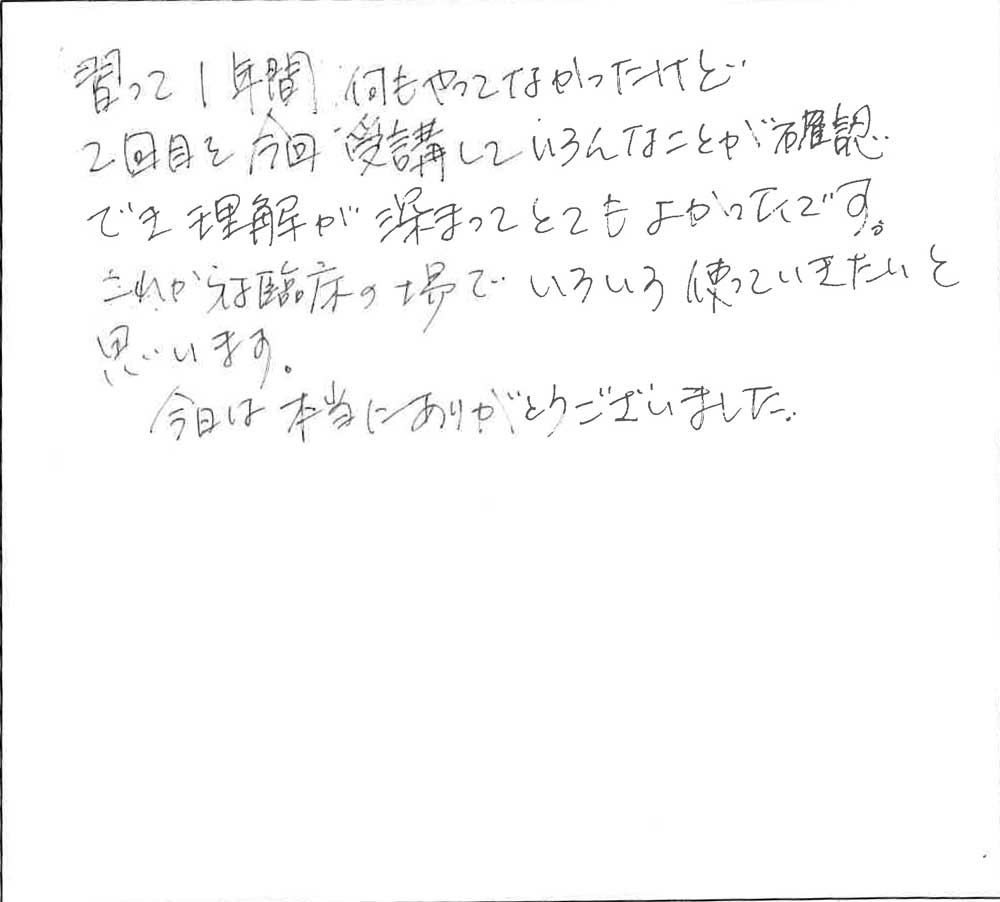 習って1年間 何もやってなかったけど
2回目を今回受講していろんなことが確認
でき理解が深まってとてもよかったです。
これからは臨床の場でいろいろ使っていきたいと
思います。
今日は本当にありがとうございました。